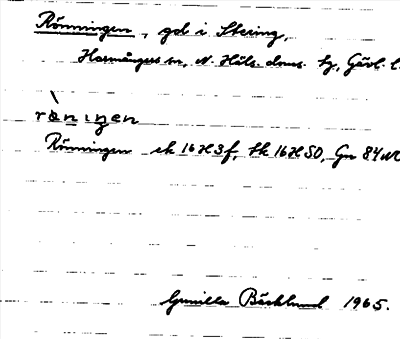 Rönningen, gd i Stering,
Harmångers sn, N. Häls. doms. tg, Gävl. l.
rö̀niŋen
Rönningen ek 16H3f, tk 16H SO, Gn 84
Gunilla Bäcklund 1965.